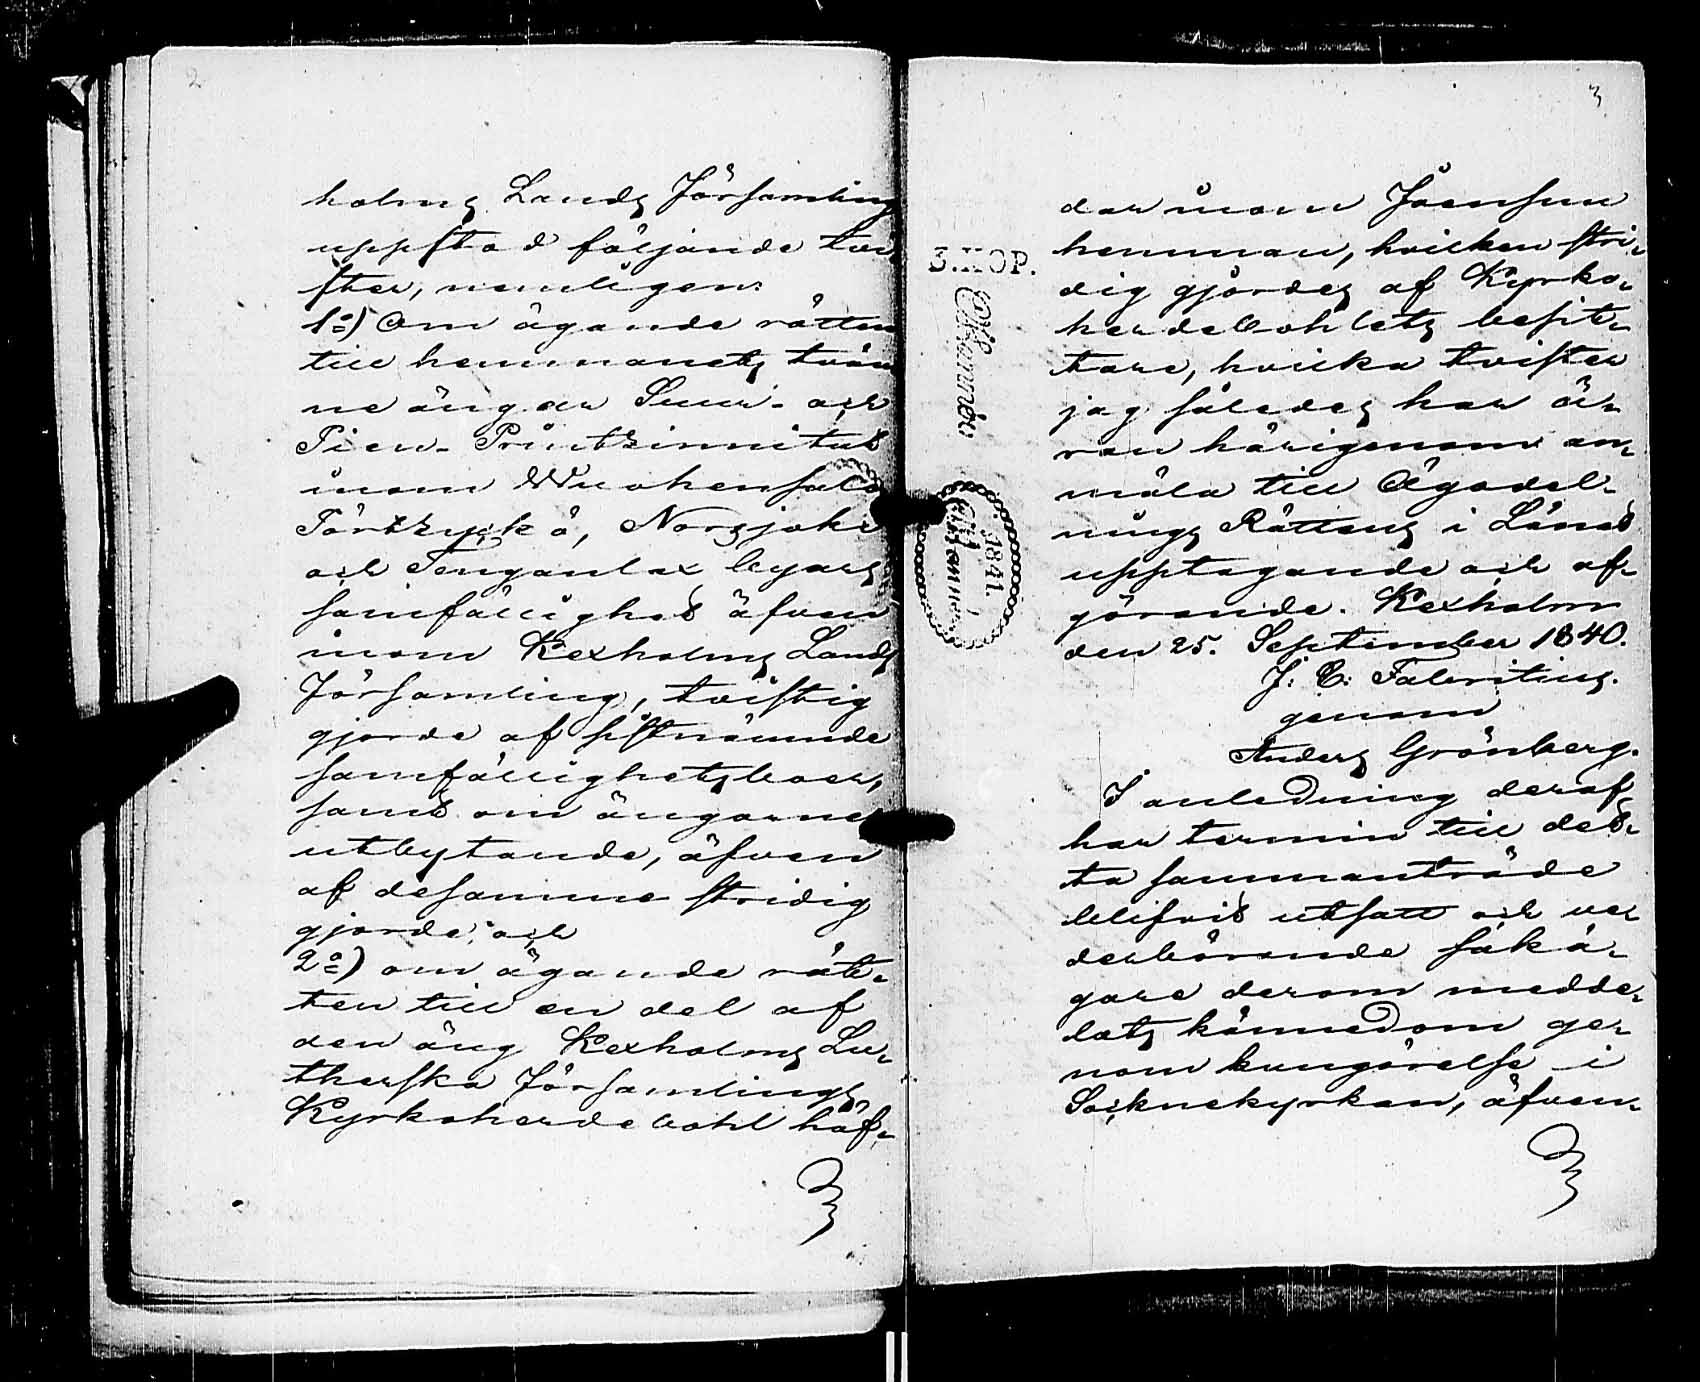 2
holms Lands Församling
uppstod följande tvi-
ster, nemligen:
1º) Om ägande rätten
till hemmanets tvän
ne ängar Suur- och
Pien- Printsinniitut
inom Wuohensalo
Törtzykä, Norsjoki
och Tenganlax byars
samfällighet äfven
inom Kexholms Lands
Församling, tvistig
gjorde af sistnämnde
samfällighetsboer,
samt om ängarnes
utbytande, äfven
af desamme stridig
gjorde; och
2º) om ägande rät-
ten till en del af
den äng Kexholms Lu-
therska Församlings
Kyrkoherdebohl häf-
3
dar inom Jåensuu
hemman, hvilken stri-
dig gjordes af Kyrko-
herdebohlets besit-
tare, hvilka tvister
jag således har ä-
ran härigenom an-
mäla till Ägodel-
nings Rättens i Länet
upptagande och af-
görande. Kexholm
den 25. September 1840.
J: E: Fabritius.
genom
Anders Grönberg.
I anledning deraf
har termin till det-
ta sammanträde
blifvit utsatt och ve-
derbörande sakä-
gare derom medde-
lats kännedom ge-
nom kungörelse i
Socknekyrkan, äfven-
3.KOP.
1841.